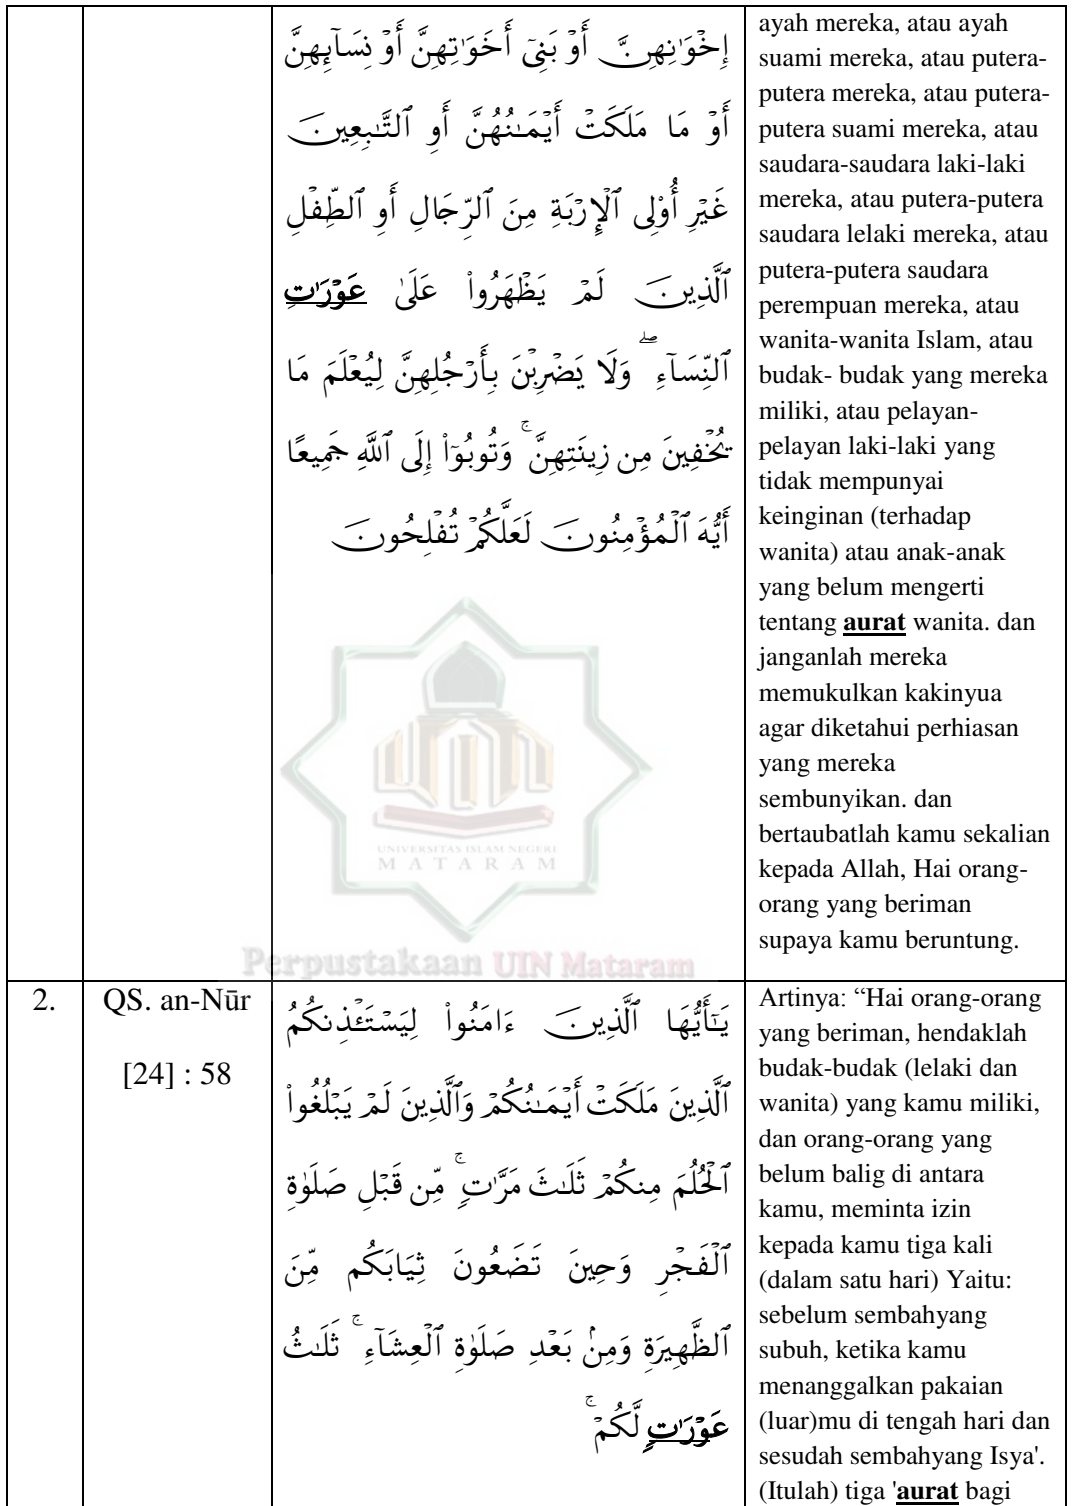 إِخْوَٰنِهِنَّ أَوْ بَنِىٓ أَخَوَٰتِهِنَّ أَوْ نِسَآئِهِنَّ
أَوْ مَا مَلَكَتْ أَيْمَـٰنُهُنَّ أَوِ ٱلتَّـٰبِعِينَ
غَيْرِ أُو۟لِى ٱلْإِرْبَةِ مِنَ ٱلرِّجَالِ أَوِ ٱلطِّفْلِ
ٱلَّذِينَ لَمْ يَظْهَرُوا۟ عَلَىٰ عَوْرَٰتِ
ٱلنِّسَآءِ ۖ وَلَا يَضْرِبْنَ بِأَرْجُلِهِنَّ لِيُعْلَمَ مَا
يُخْفِينَ مِن زِينَتِهِنَّ ۚ وَتُوبُوٓا۟ إِلَى ٱللَّهِ جَمِيعًا
أَيُّهَ ٱلْمُؤْمِنُونَ لَعَلَّكُمْ تُفْلِحُونَ
ayah mereka, atau ayah
suami mereka, atau putera-
putera mereka, atau putera-
putera suami mereka, atau
saudara-saudara laki-laki
mereka, atau putera-putera
saudara lelaki mereka, atau
putera-putera saudara
perempuan mereka, atau
wanita-wanita Islam, atau
budak- budak yang mereka
miliki, atau pelayan-
pelayan laki-laki yang
tidak mempunyai
keinginan (terhadap
wanita) atau anak-anak
yang belum mengerti
tentang aurat wanita. dan
janganlah mereka
memukulkan kakinyua
agar diketahui perhiasan
yang mereka
sembunyikan. dan
bertaubatlah kamu sekalian
kepada Allah, Hai orang-
orang yang beriman
supaya kamu beruntung.
UNIVERSITAS ISLAM NEGERI
MATARAM
Perpustakaan UIN Mataram
2.
QS. an-Nūr
[24] : 58
يَـٰٓأَيُّهَا ٱلَّذِينَ ءَامَنُوا۟ لِيَسْتَـْٔذِنكُمُ
ٱلَّذِينَ مَلَكَتْ أَيْمَـٰنُكُمْ وَٱلَّذِينَ لَمْ يَبْلُغُوا۟
ٱلْحُلُمَ مِنكُمْ ثَلَـٰثَ مَرَّٰتٍ ۚ مِّن قَبْلِ صَلَوٰةِ
ٱلْفَجْرِ وَحِينَ تَضَعُونَ ثِيَابَكُم مِّنَ
ٱلظَّهِيرَةِ وَمِنۢ بَعْدِ صَلَوٰةِ ٱلْعِشَآءِ ۚ ثَلَـٰثُ
عَوْرَٰتٍ لَّكُمْ ۚ
Artinya: “Hai orang-orang
yang beriman, hendaklah
budak-budak (lelaki dan
wanita) yang kamu miliki,
dan orang-orang yang
belum balig di antara
kamu, meminta izin
kepada kamu tiga kali
(dalam satu hari) Yaitu:
sebelum sembahyang
subuh, ketika kamu
menanggalkan pakaian
(luar)mu di tengah hari dan
sesudah sembahyang Isya'.
(Itulah) tiga 'aurat bagi